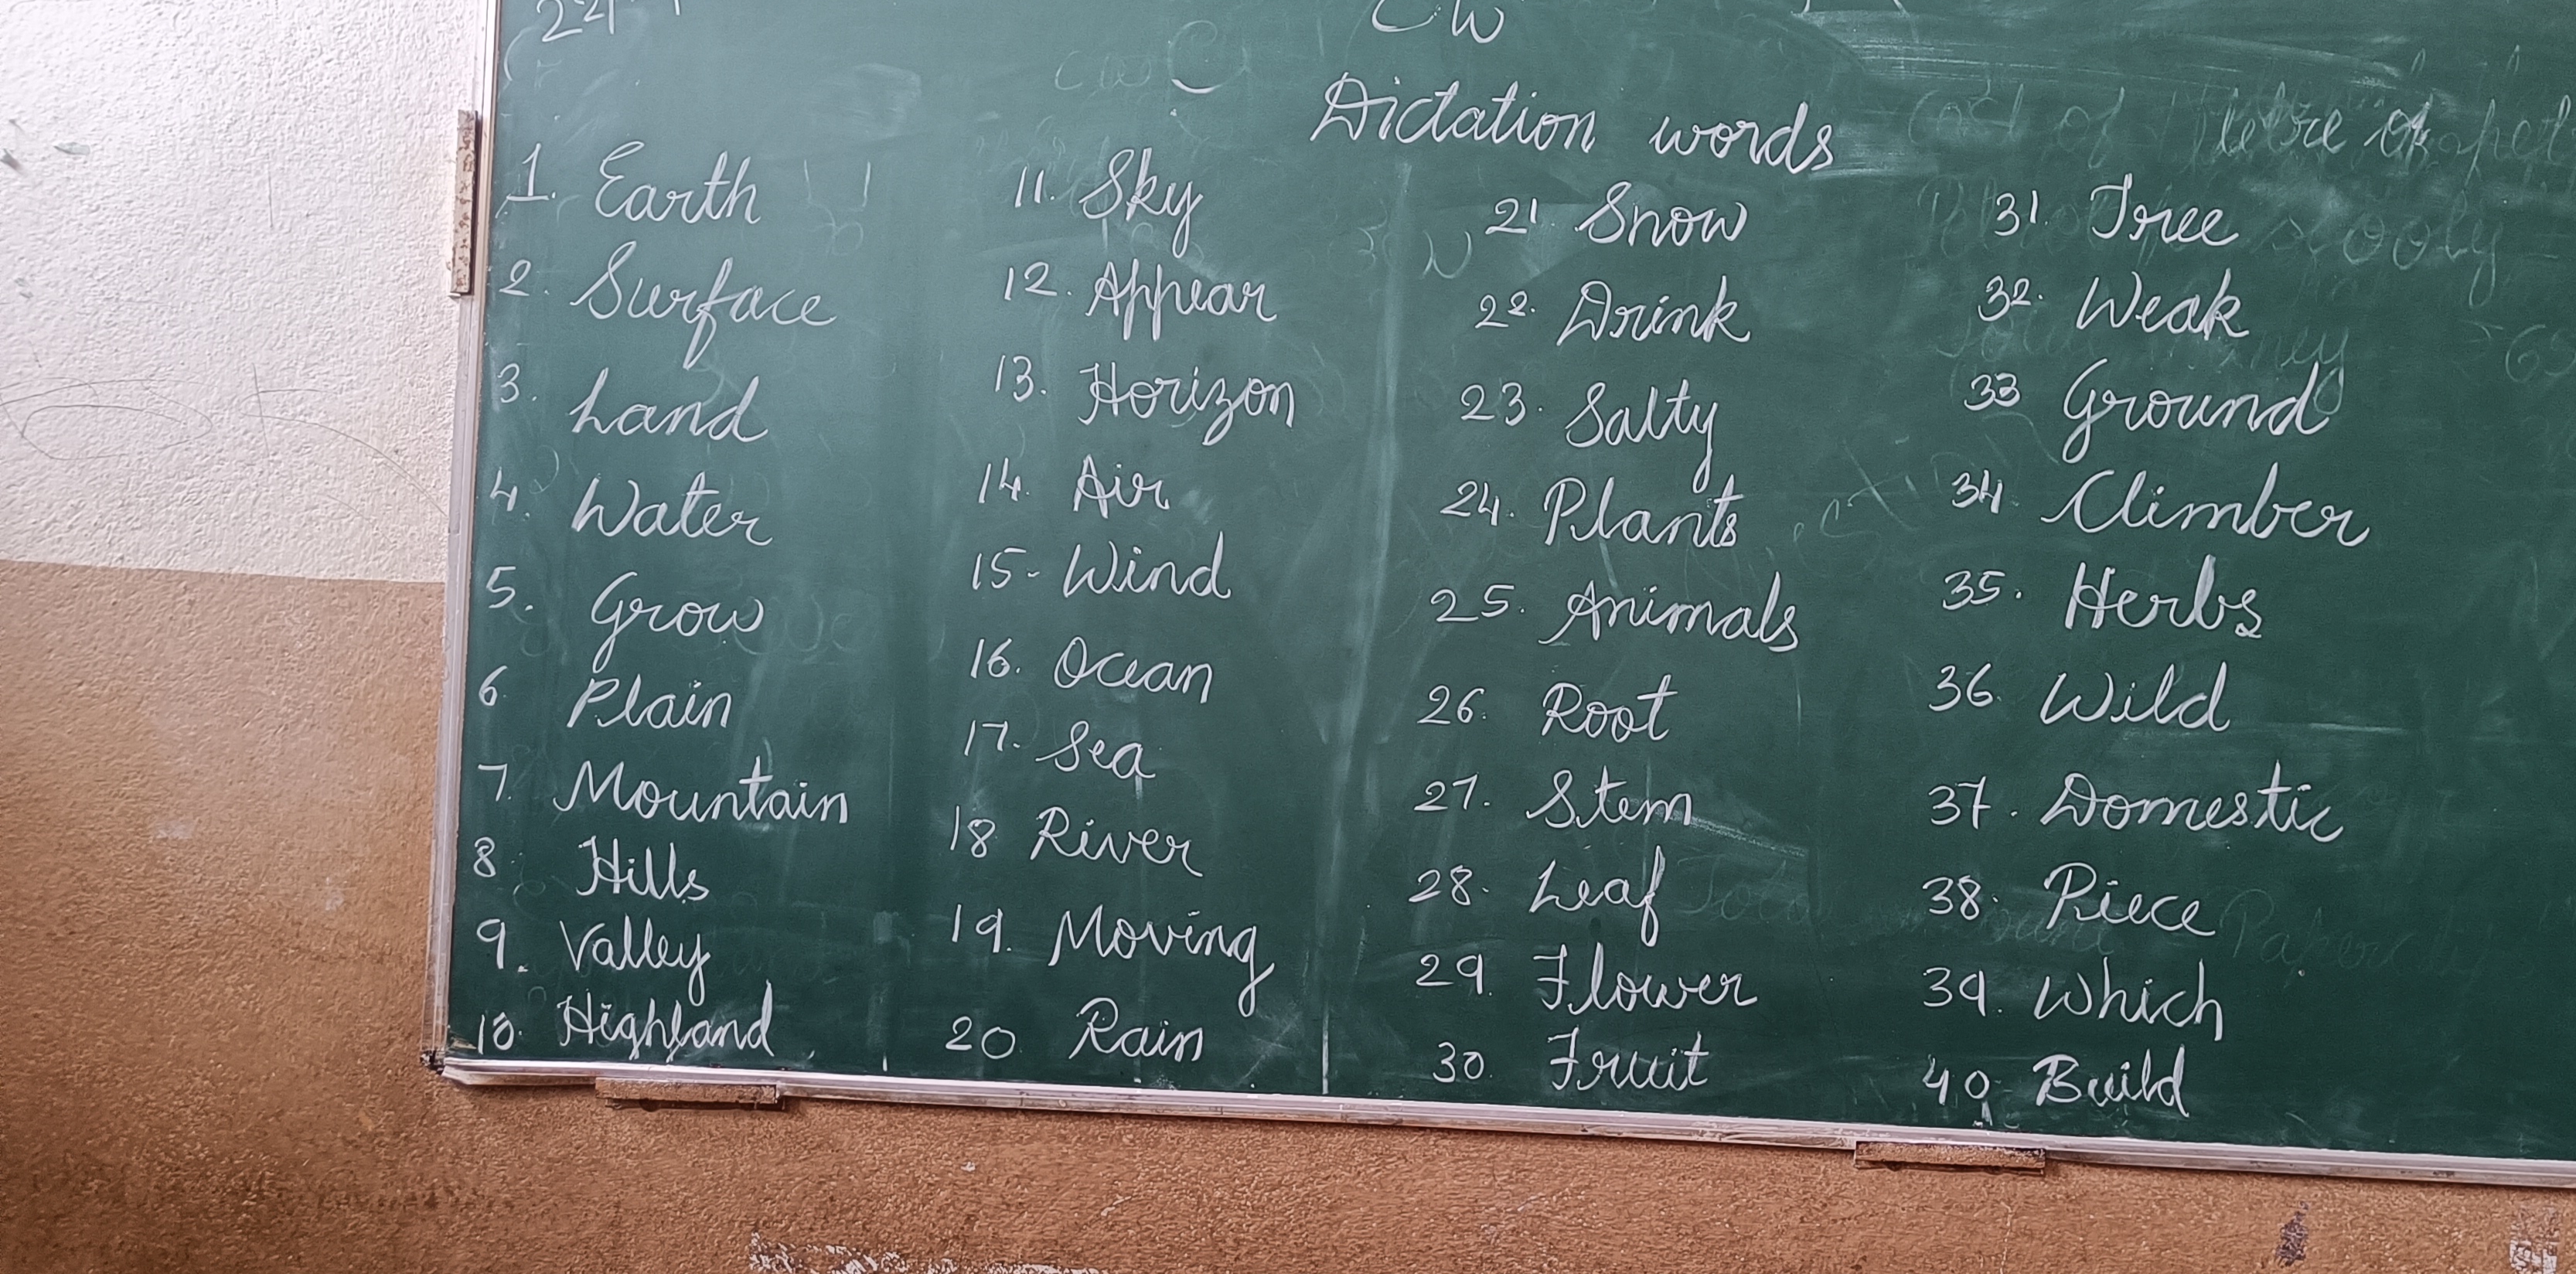 CW
Dictation words
1. Earth
2. Surface
3. Land
4. Water
5. Grow
6. Plain
7. Mountain
8. Hills
9. Valley
10. Highland
11. Sky
12. Appear
13. Horizon
14. Air
15- Wind
16. Ocean
17. Sea
18 River
19. Moving
20 Rain
21. Snow
22. Drink
23. Salty
24. Plants
25. Animals
26. Root
27. Stem
28. Leaf
29. Flower
30 Fruit
31. Tree
32. Weak
33 Ground
34 Climber
35. Herbs
36. Wild
37. Domestic
38. Piece
39. Which
40 Build